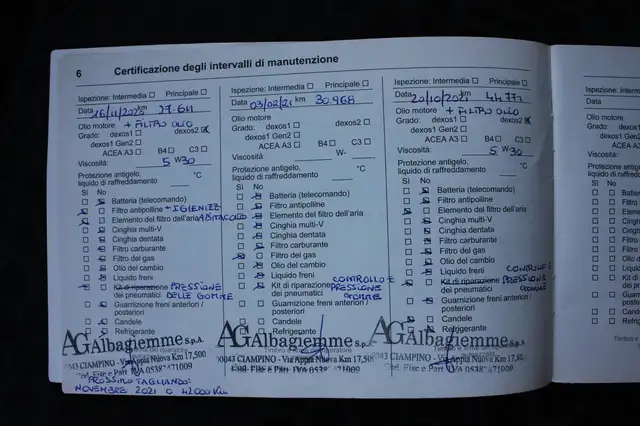 6 Certificazione degli intervalli di manutenzione
Ispezione: Intermedia Principale
Data 16/11/2020 km 27.611
Olio motore + FILTRO OLIO
Grado: dexos1 dexos2
dexos1 Gen2
ACEA A3 B4 C3
Viscosità: 5 W 30
Protezione antigelo, °C
liquido di raffreddamento
Sì No
Batteria (telecomando)
Filtro antipolline + IGIENIZZ
Elemento del filtro dell'aria ABITACOLO
Cinghia multi-V
Cinghia dentata
Filtro carburante
Filtro del gas
Olio del cambio
Liquido freni
Kit di riparazione PRESSIONE
dei pneumatici DELLE GOMME
Guarnizione freni anteriori/
posteriori
Candele
Refrigerante
AGAlbagiemme S.p.A.
CIAMPINO - Via Appia Nuova Km 17,500
Cod. Fisc e Part IVA 05382471009
PROSSIMO TAGLIANDO:
NOVEMBRE 2021 O 42000 Km
Ispezione: Intermedia Principale
Data 03/02/21 km 30.968
Olio motore
Grado: dexos1 dexos2
dexos1 Gen2
ACEA A3 B4 C3
Viscosità: W-
Protezione antigelo, °C
liquido di raffreddamento
Sì No
Batteria (telecomando)
Filtro antipolline
Elemento del filtro dell'aria
Cinghia multi-V
Cinghia dentata
Filtro carburante
Filtro del gas
Olio del cambio
Liquido freni CONTROLLO E
Kit di riparazione PRESSIONE
dei pneumatici GOMME
Guarnizione freni anteriori/
posteriori
Candele
Refrigerante
AGAlbagiemme S.p.A.
00043 CIAMPINO - Via Appia Nuova Km 17,500
Cod. Fisc e Part IVA 05382471009
Ispezione: Intermedia Principale
Data 20/10/2021 km 44.771
Olio motore + FILTRO OLIO
Grado: dexos1 dexos2
dexos1 Gen2
ACEA A3 B4 C3
Viscosità: 5 W 30
Protezione antigelo, °C
liquido di raffreddamento
Sì No
Batteria (telecomando)
Filtro antipolline
Elemento del filtro dell'aria
Cinghia multi-V
Cinghia dentata
Filtro carburante
Filtro del gas
Olio del cambio
Liquido freni CONTROLLO E
Kit di riparazione PRESSIONE
dei pneumatici GOMME
Guarnizione freni anteriori/
posteriori
Candele
Refrigerante
AGAlbagiemme S.p.A.
CIAMPINO - Via Appia Nuova Km 17,500
Cod. Fisc e Part IVA 05382471009